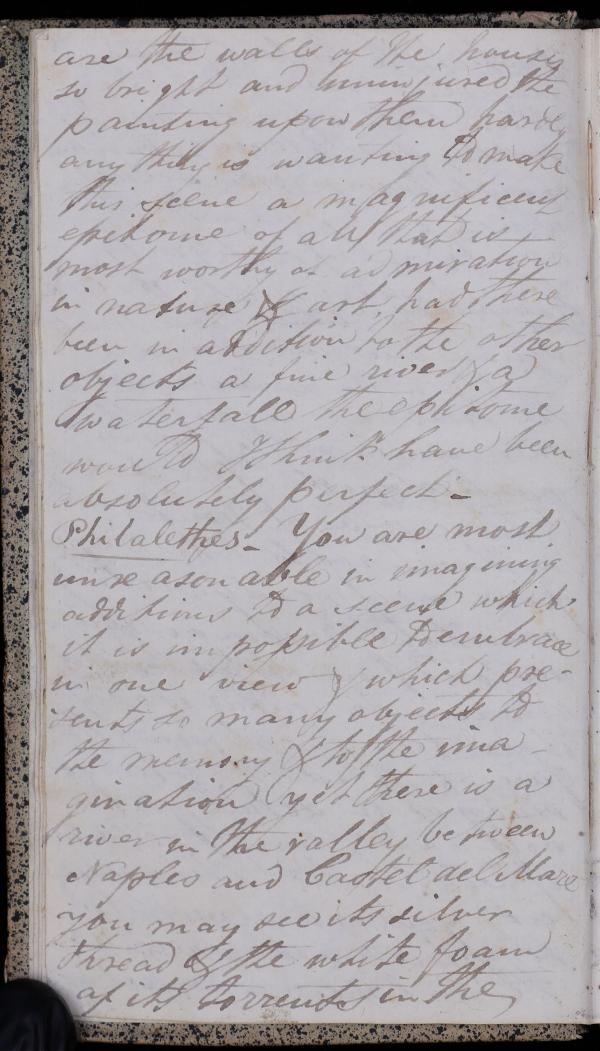 are the walls of the houses
so bright and uninjured the
painting upon them hardly
any thing is wanting to make
this scene a magnificent
epitome of all that is
most worthy of admiration
in nature & art, had there
been in addition to the other
objects a fine river & a
waterfall the epitome
would I think have been
absolutely perfect. -
Philalethes - You are most
unreasonable in imagining
additions to a scene which
it is impossible to embrace
in one view & which pre-
sents so many objects to
the memory & to the ima-
gination yet there is a
river in the valley between
Naples and Castel del Mare
you may see its silver
thread & the white foam
of its torrents in the